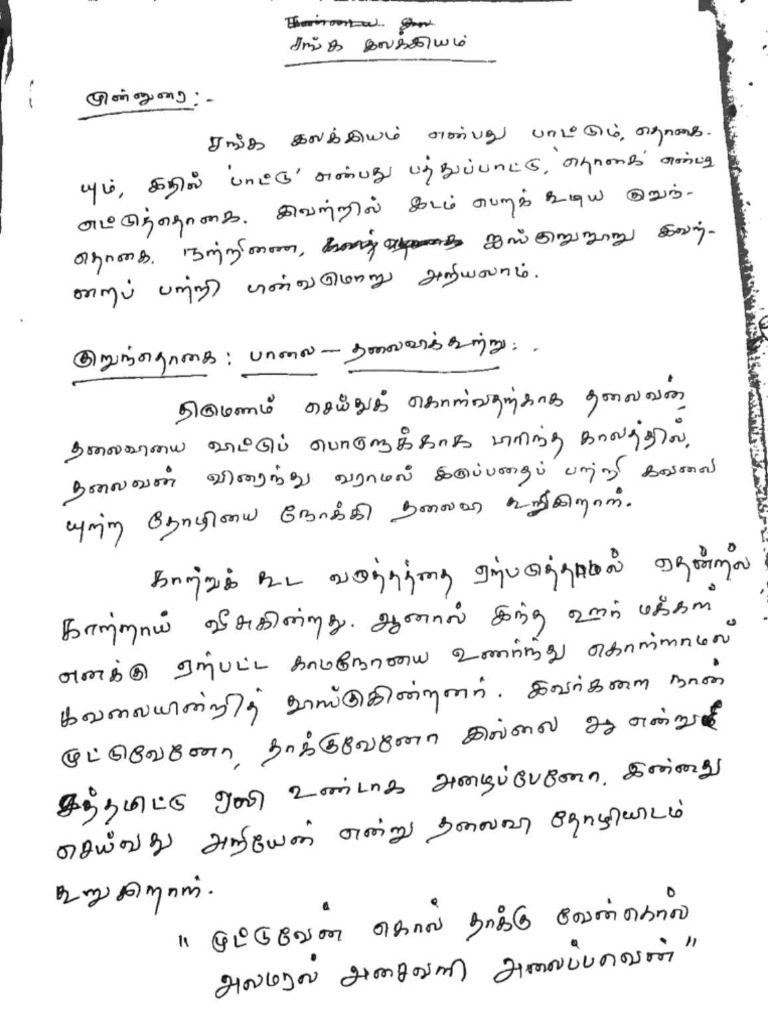 சங்க இலக்கியம்
முன்னுரை:-
சங்க இலக்கியம் என்பது பாட்டும், தொகை-
யும், இதில் 'பாட்டு' என்பது பத்துப்பாட்டு, 'தொகை' என்பது
எட்டுத்தொகை. இவற்றில் இடம் பெறக் கூடிய குறுந்-
தொகை, நற்றிணை, ஐங்குறுநூறு இவற்-
றைப் பற்றி பின்வருமாறு அறியலாம்.
குறுந்தொகை: பாலை – தலைவிக்கூற்று:.
திருமணம் செய்துக் கொள்வதற்காக தலைவன்,
தலைவியை விட்டுப் பொருளுக்காக பிரிந்த காலத்தில்,
தலைவன் விரைந்து வராமல் இருப்பதைப் பற்றி கவலை
யுற்ற தோழியை நோக்கி தலைவி கூறுகிறாள்.
காற்றுக் கூட வருத்தத்தை ஏற்படுத்தாமல் தென்றல்
காற்றாய் வீசுகின்றது. ஆனால் இந்த ஊர் மக்கள்
எனக்கு ஏற்பட்ட காமநோயை உணர்ந்து கொள்ளாமல்
கவலையின்றித் தூங்குகின்றனர். இவர்களை நான்
முட்டுவேனோ, தாக்குவேனோ இல்லை ஆ என்று
சத்தமிட்டு ஒலி உண்டாக அழைப்பேனோ, இன்னது
செய்வது அறியேன் என்று தலைவி தோழியிடம்
கூறுகிறாள்.
"முட்டுவேன் கொல் தாக்கு வேன்கொல்
அலமரல் அசைவளி அலைப்பவென்"